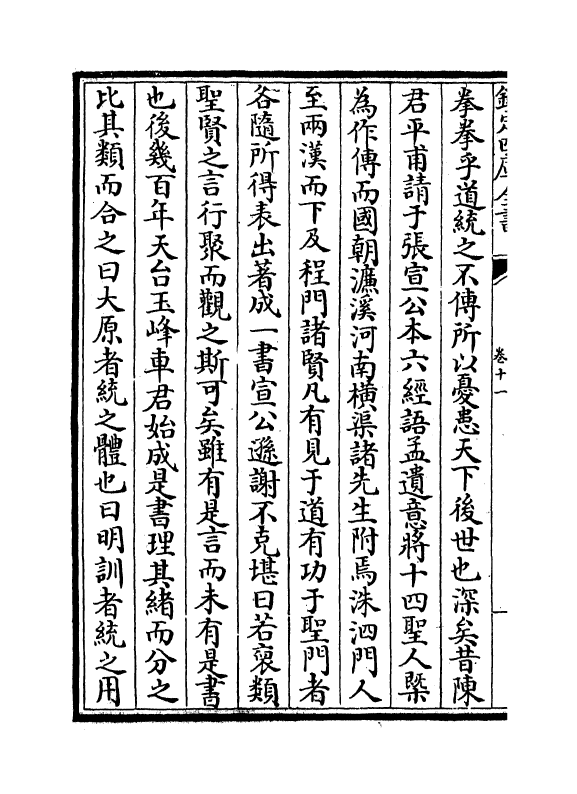 欽定四庫全書
卷十一
拳拳乎道統之不傳所以憂患天下後世也深矣昔陳
君平甫請于張宣公本六經語孟遺意將十四聖人槩
為作傳而國朝濂溪河南橫渠諸先生附焉洙泗門人
至兩漢而下及程門諸賢凡有見于道有功于聖門者
各隨所得表出著成一書宣公遜謝不克堪曰若裒類
聖賢之言行聚而觀之斯可矣雖有是言而未有是書
也後幾百年天台玉峰車君始成是書理其緒而分之
比其類而合之曰大原者統之體也曰明訓者統之用